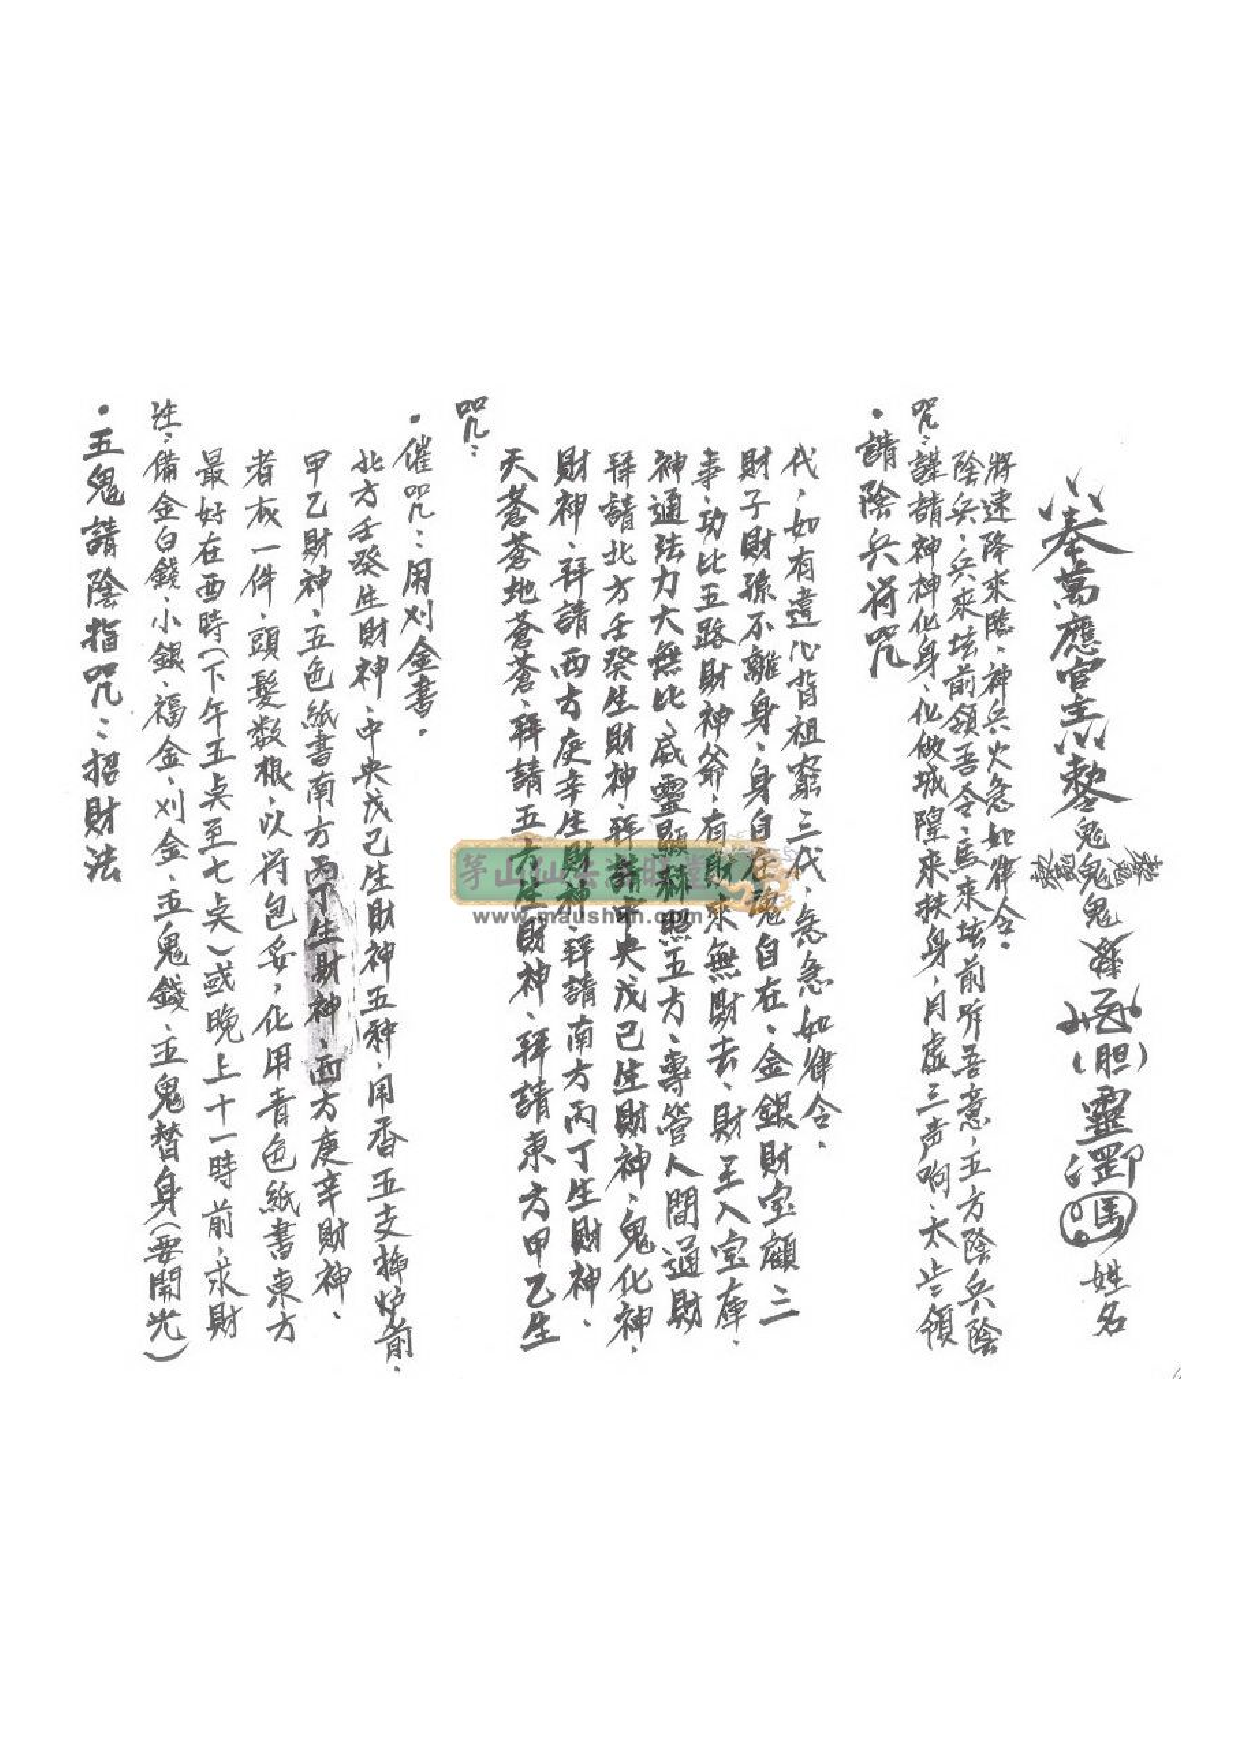 ・五鬼請陰指咒：招財法
註：備金白錢、小銀、福金、刈金、五鬼錢、五鬼替身(要開光)
最好在酉時(下午五点至七点)或晚上十一時前、求財
者衣一件、頭髮数根、以符包妥、化用青色紙書東方
甲乙財神、五色紙書南方丙丁生財神、西方庚辛財神、
北方壬癸生財神、中央戊己生財神五種、用香五支插炉前、
・催咒：用刈金書、
咒：
天蒼蒼地蒼蒼、拜請五方生財神、拜請東方甲乙生
財神、拜請西方庚辛生財神、拜請南方丙丁生財神、
拜請北方壬癸生財神、拜請中央戊己生財神、鬼化神、
神通法力大無比、威靈顯赫照五方、專管人間通財
事、功比五路財神爺、有財來無財去、財王入宝庫、
財子財孫不離身、身自在魂自在、金銀財宝顧三
代、如有違心背祖窮三代、急急如律令、
・請陰兵符咒
咒：謹請神神化身、化做城隍來扶身、月虚三声响、太岁領
陰兵、兵來坛前領吾令、馬來坛前听吾意、五方陰兵陰
將速降來臨、神兵火急如律令、
奉萬應官主 鬼鬼鬼鬼 (胆)靈 姓名
茅山仙
www.maushan.com